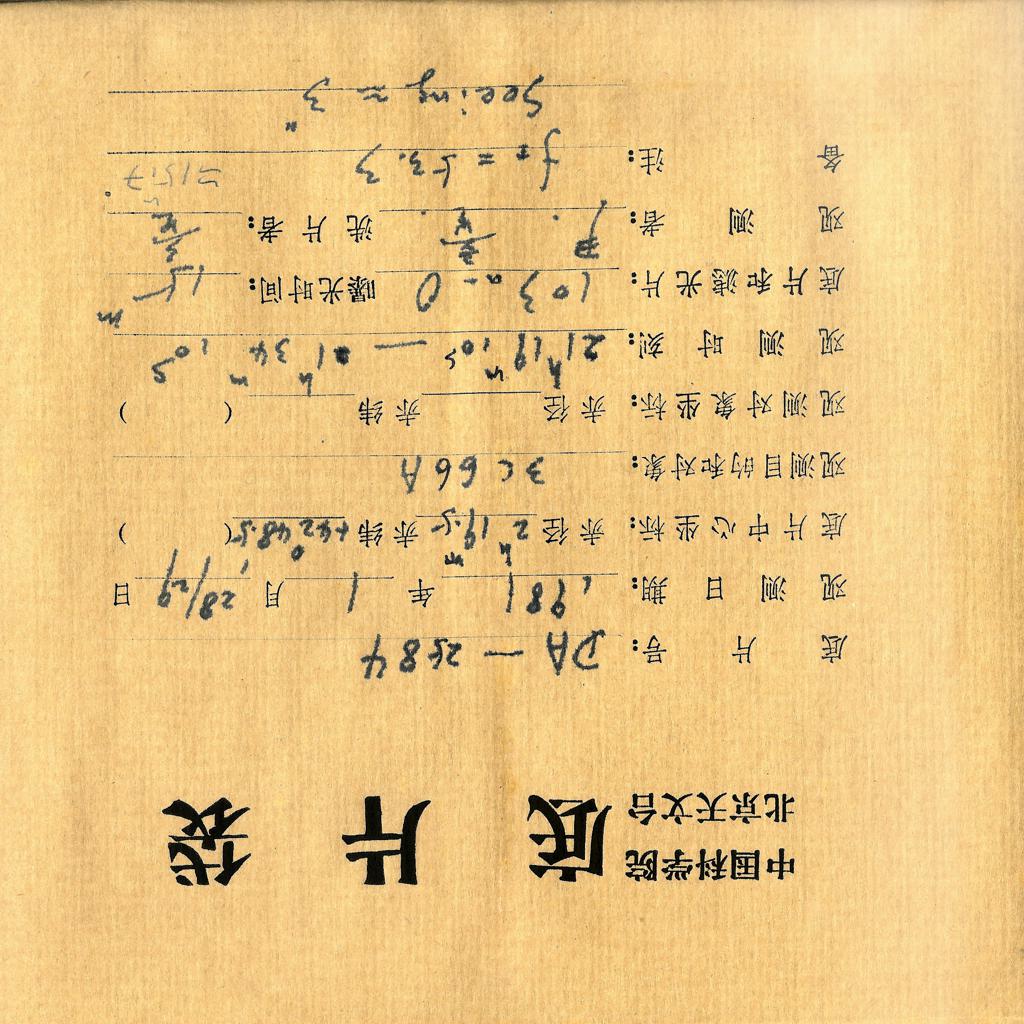 中国科学院
北京天文台 底片袋
底片号: DA — 2584
观测日期: 1981年1月28/29日
底片中心坐标: 赤径 2ʰ19ᵐ.5 赤纬 +42°48′.5 ( )
观测目的和对象: 3C66A
观测对象坐标: 赤径 赤纬 ( )
观测时刻: 21ʰ19ᵐ10ˢ — 21ʰ34ᵐ10ˢ
底片和滤光片: 103a-O 曝光时间: 15ᵐ
观测者: 洗片者:
备注: f = 53.3
Seeing ≈ 3"